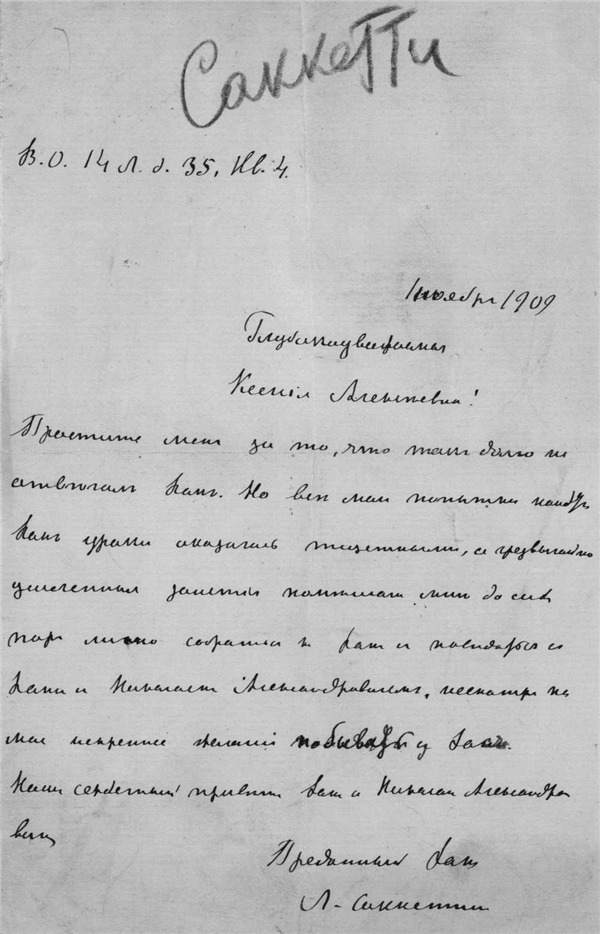 Саккетти
В. О. 14 л. д. 35, кв. 4.
1 ноября 1909
Глубокоуважаемая
Ксенія Алексѣевна!
Простите меня за то, что такъ долго не
отвѣчалъ Вамъ. Но всѣ мои попытки найти
Вамъ уроки оказались тщетными, а чрезвычайно
усиленныя занятія помѣшали мнѣ до сихъ
поръ лично собраться къ Вамъ и повидаться съ
Вами и Николаемъ Александровичемъ, несмотря на
мое искреннее желаніе побывать у Васъ.
Нашъ сердечный привѣтъ Вамъ и Николаю Александро
вичу
Преданный Вамъ
Л. Саккетти